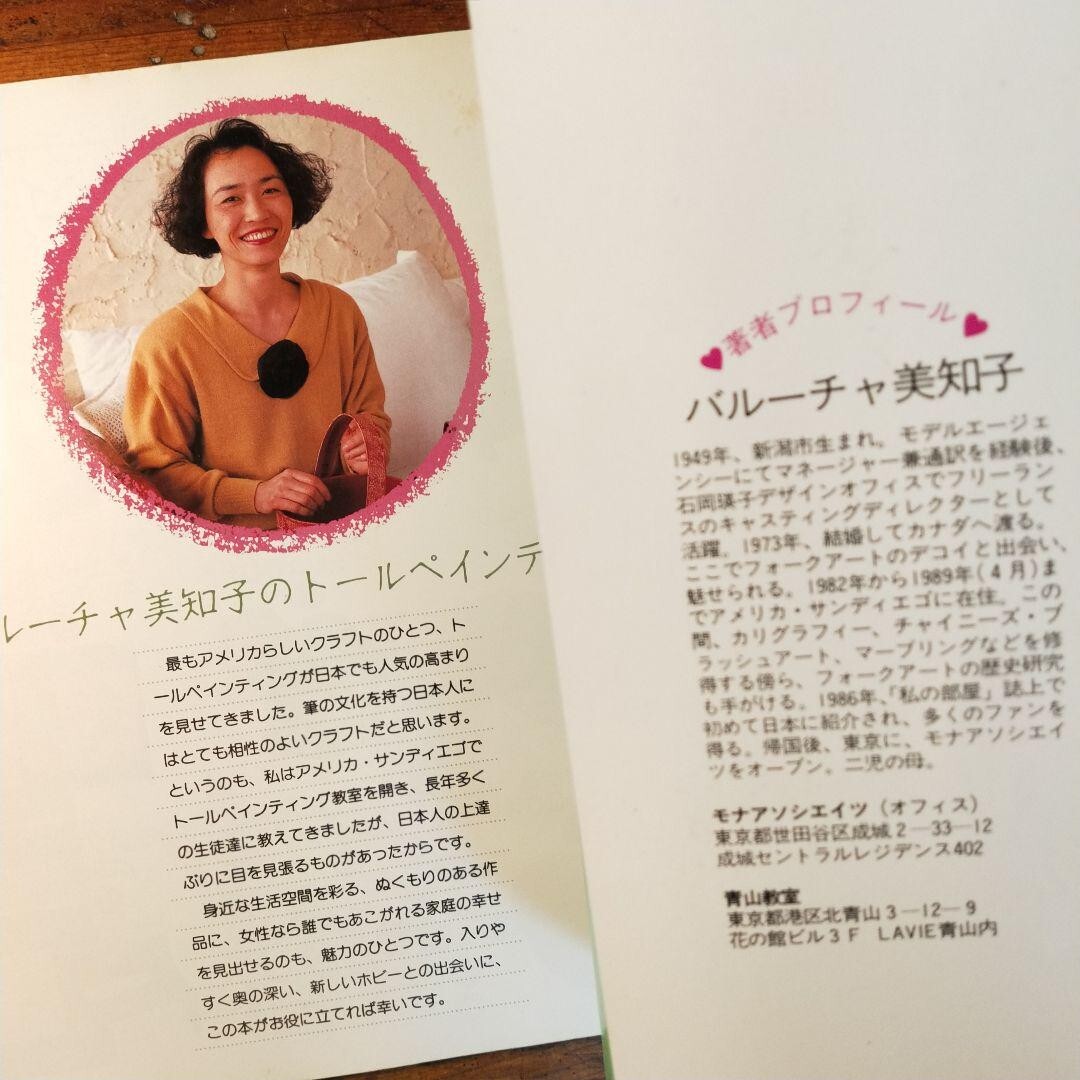 ルーチャ美知子のトールペインテ
最もアメリカらしいクラフトのひとつ、ト
ールペインティングが日本でも人気の高まり
を見せてきました。筆の文化を持つ日本人に
はとても相性のよいクラフトだと思います。
というのも、私はアメリカ・サンディエゴで
トールペインティング教室を開き、長年多く
の生徒達に教えてきましたが、日本人の上達
ぶりに目を見張るものがあったからです。
身近な生活空間を彩る、ぬくもりのある作
品に、女性なら誰でもあこがれる家庭の幸せ
を見出せるのも、魅力のひとつです。入りや
すく奥の深い、新しいホビーとの出会いに、
この本がお役に立てれば幸いです。
♥著者プロフィール♥
バルーチャ美知子
1949年、新潟市生まれ。モデルエージェ
ンシーにてマネージャー兼通訳を経験後、
石岡瑛子デザインオフィスでフリーラン
スのキャスティングディレクターとして
活躍。1973年、結婚してカナダへ渡る。
ここでフォークアートのデコイと出会い、
魅せられる。1982年から1989年(4月)ま
でアメリカ・サンディエゴに在住。この
間、カリグラフィー、チャイニーズ・ブ
ラッシュアート、マーブリングなどを修
得する傍ら、フォークアートの歴史研究
も手がける。1986年、「私の部屋」誌上で
初めて日本に紹介され、多くのファンを
得る。帰国後、東京に、モナアソシエイ
ツをオープン。二児の母。
モナアソシエイツ（オフィス）
東京都世田谷区成城2―33―12
成城セントラルレジデンス402
青山教室
東京都港区北青山3―12―9
花の館ビル3F　LAVIE青山内